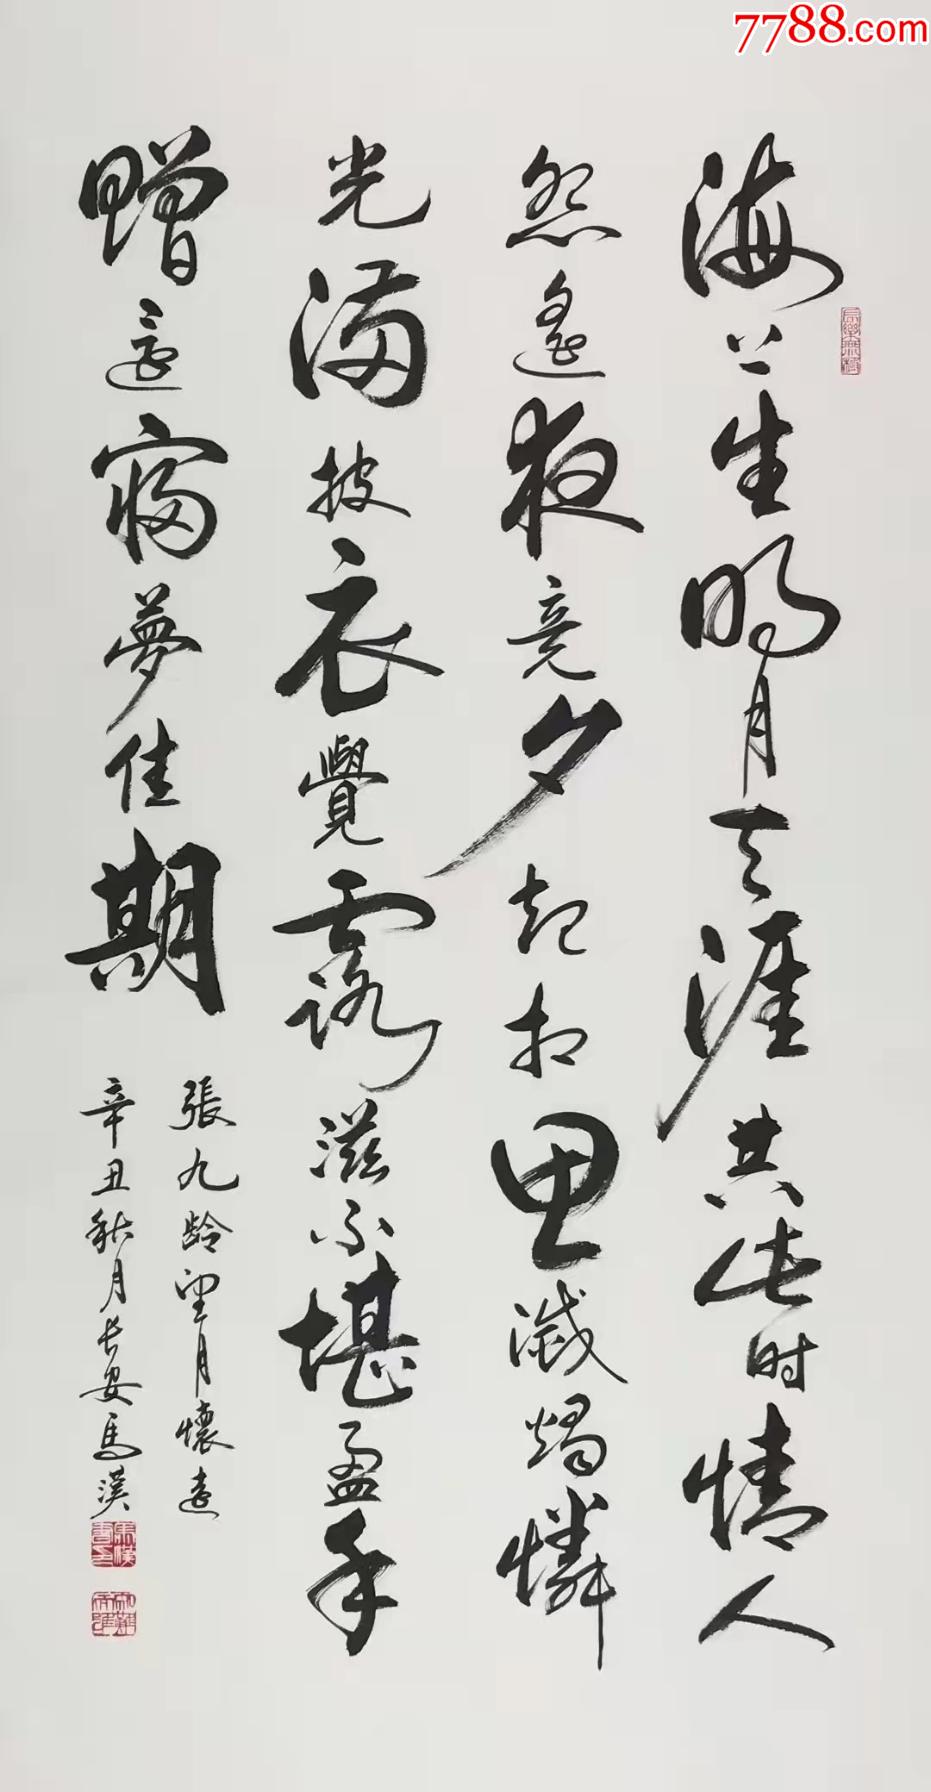 7788.com
海上生明月天涯共此时情人
怨遙夜竟夕起相思滅燭憐
光滿披衣覺露滋不堪盈手
贈還寢夢佳期
張九龄望月懷遠
辛丑秋月長安馬漢